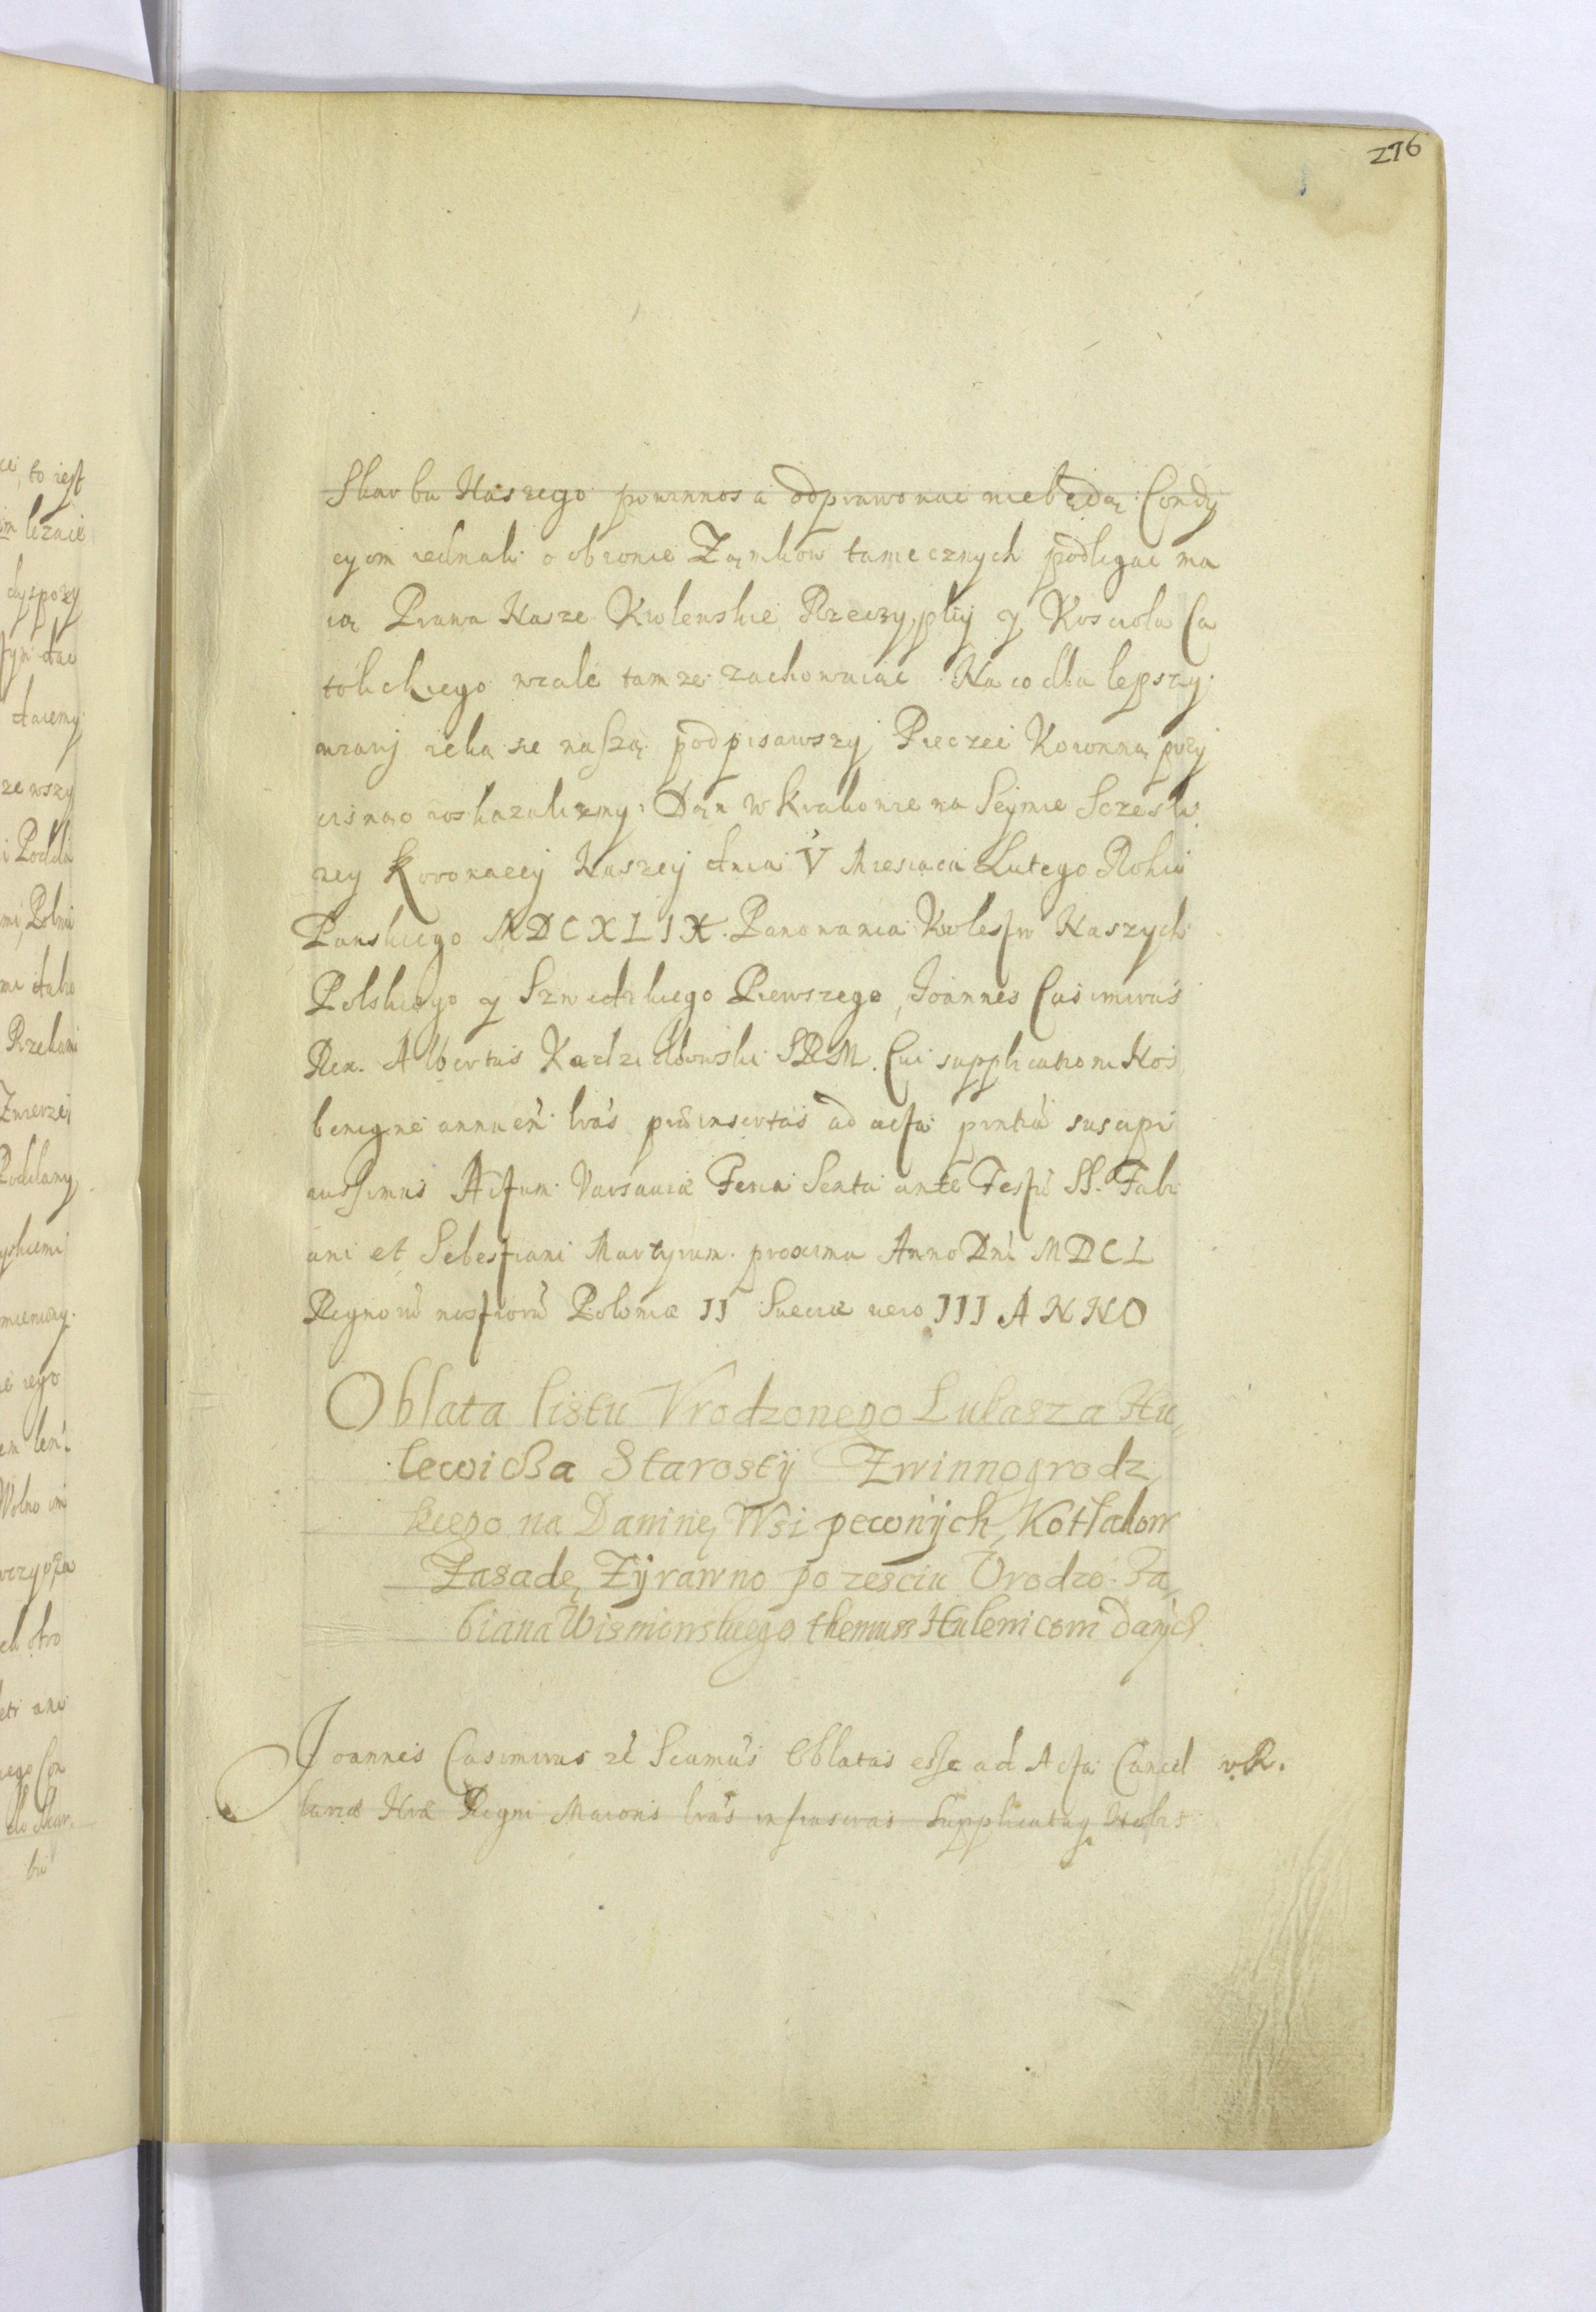 276
Skarbu Naszego powinnosci odprawowac niebędą. Condy
cyom iednak o obronie Zamkow tamecznych podlegac ma
ią Prawa Nasze Krolewskie Rzeczyptey y Koscioła Ca
tolickiego wcale tamze zachowuiąc. Na co dla lepszey
wiary ręką się naszą podpisawszy Pieczęć Koronną przy
cisnąc roskazalismy. Dan w Krakowie na Seymie Szczesli
wey Koronacey Naszey dnia V Miesiąca Lutego Roku
Panskiego MDCXLIX. Panowania Krolestw Naszych
Polskiego y Szwedzkiego Pierwszego, Joannes Casimirus
Rex. Albertus Kadzidłowski SRM. Cui supplicationi Nos
benigne annuen lras preinsertas ad acta pntia suscipi
iussimus Actum Varsaviæ Feria Sexta ante Festu SS. Fabi
ani et Sebestiani Martyrum proxima Anno Dni MDCL
Regnorũ nostrorũ Poloniæ II Sueciæ vero III ANNO
Oblata listu Vrodzonego Lukasza Hu
lewicza Starosty Zwinnogrodz
kiego na Daninę Wsi pewnych, Kotlakow
Zasadę, Zyrawno po zesciu Urodzo. Fa
biana Wismonskiego themuss Hulewiczowi danych
Joannes Casimirus rc Scimus Oblatas esse ad Acta Cancel v.R.
lariæ Nræ Regni Maioris lras infrascras Supplicatuq Nobis
ce, to iest
lezace
dyspozy
dac
daiemy
ze wszy
i Poddą
mi, Polmi
Rzekami
Zwierzej
Poddany